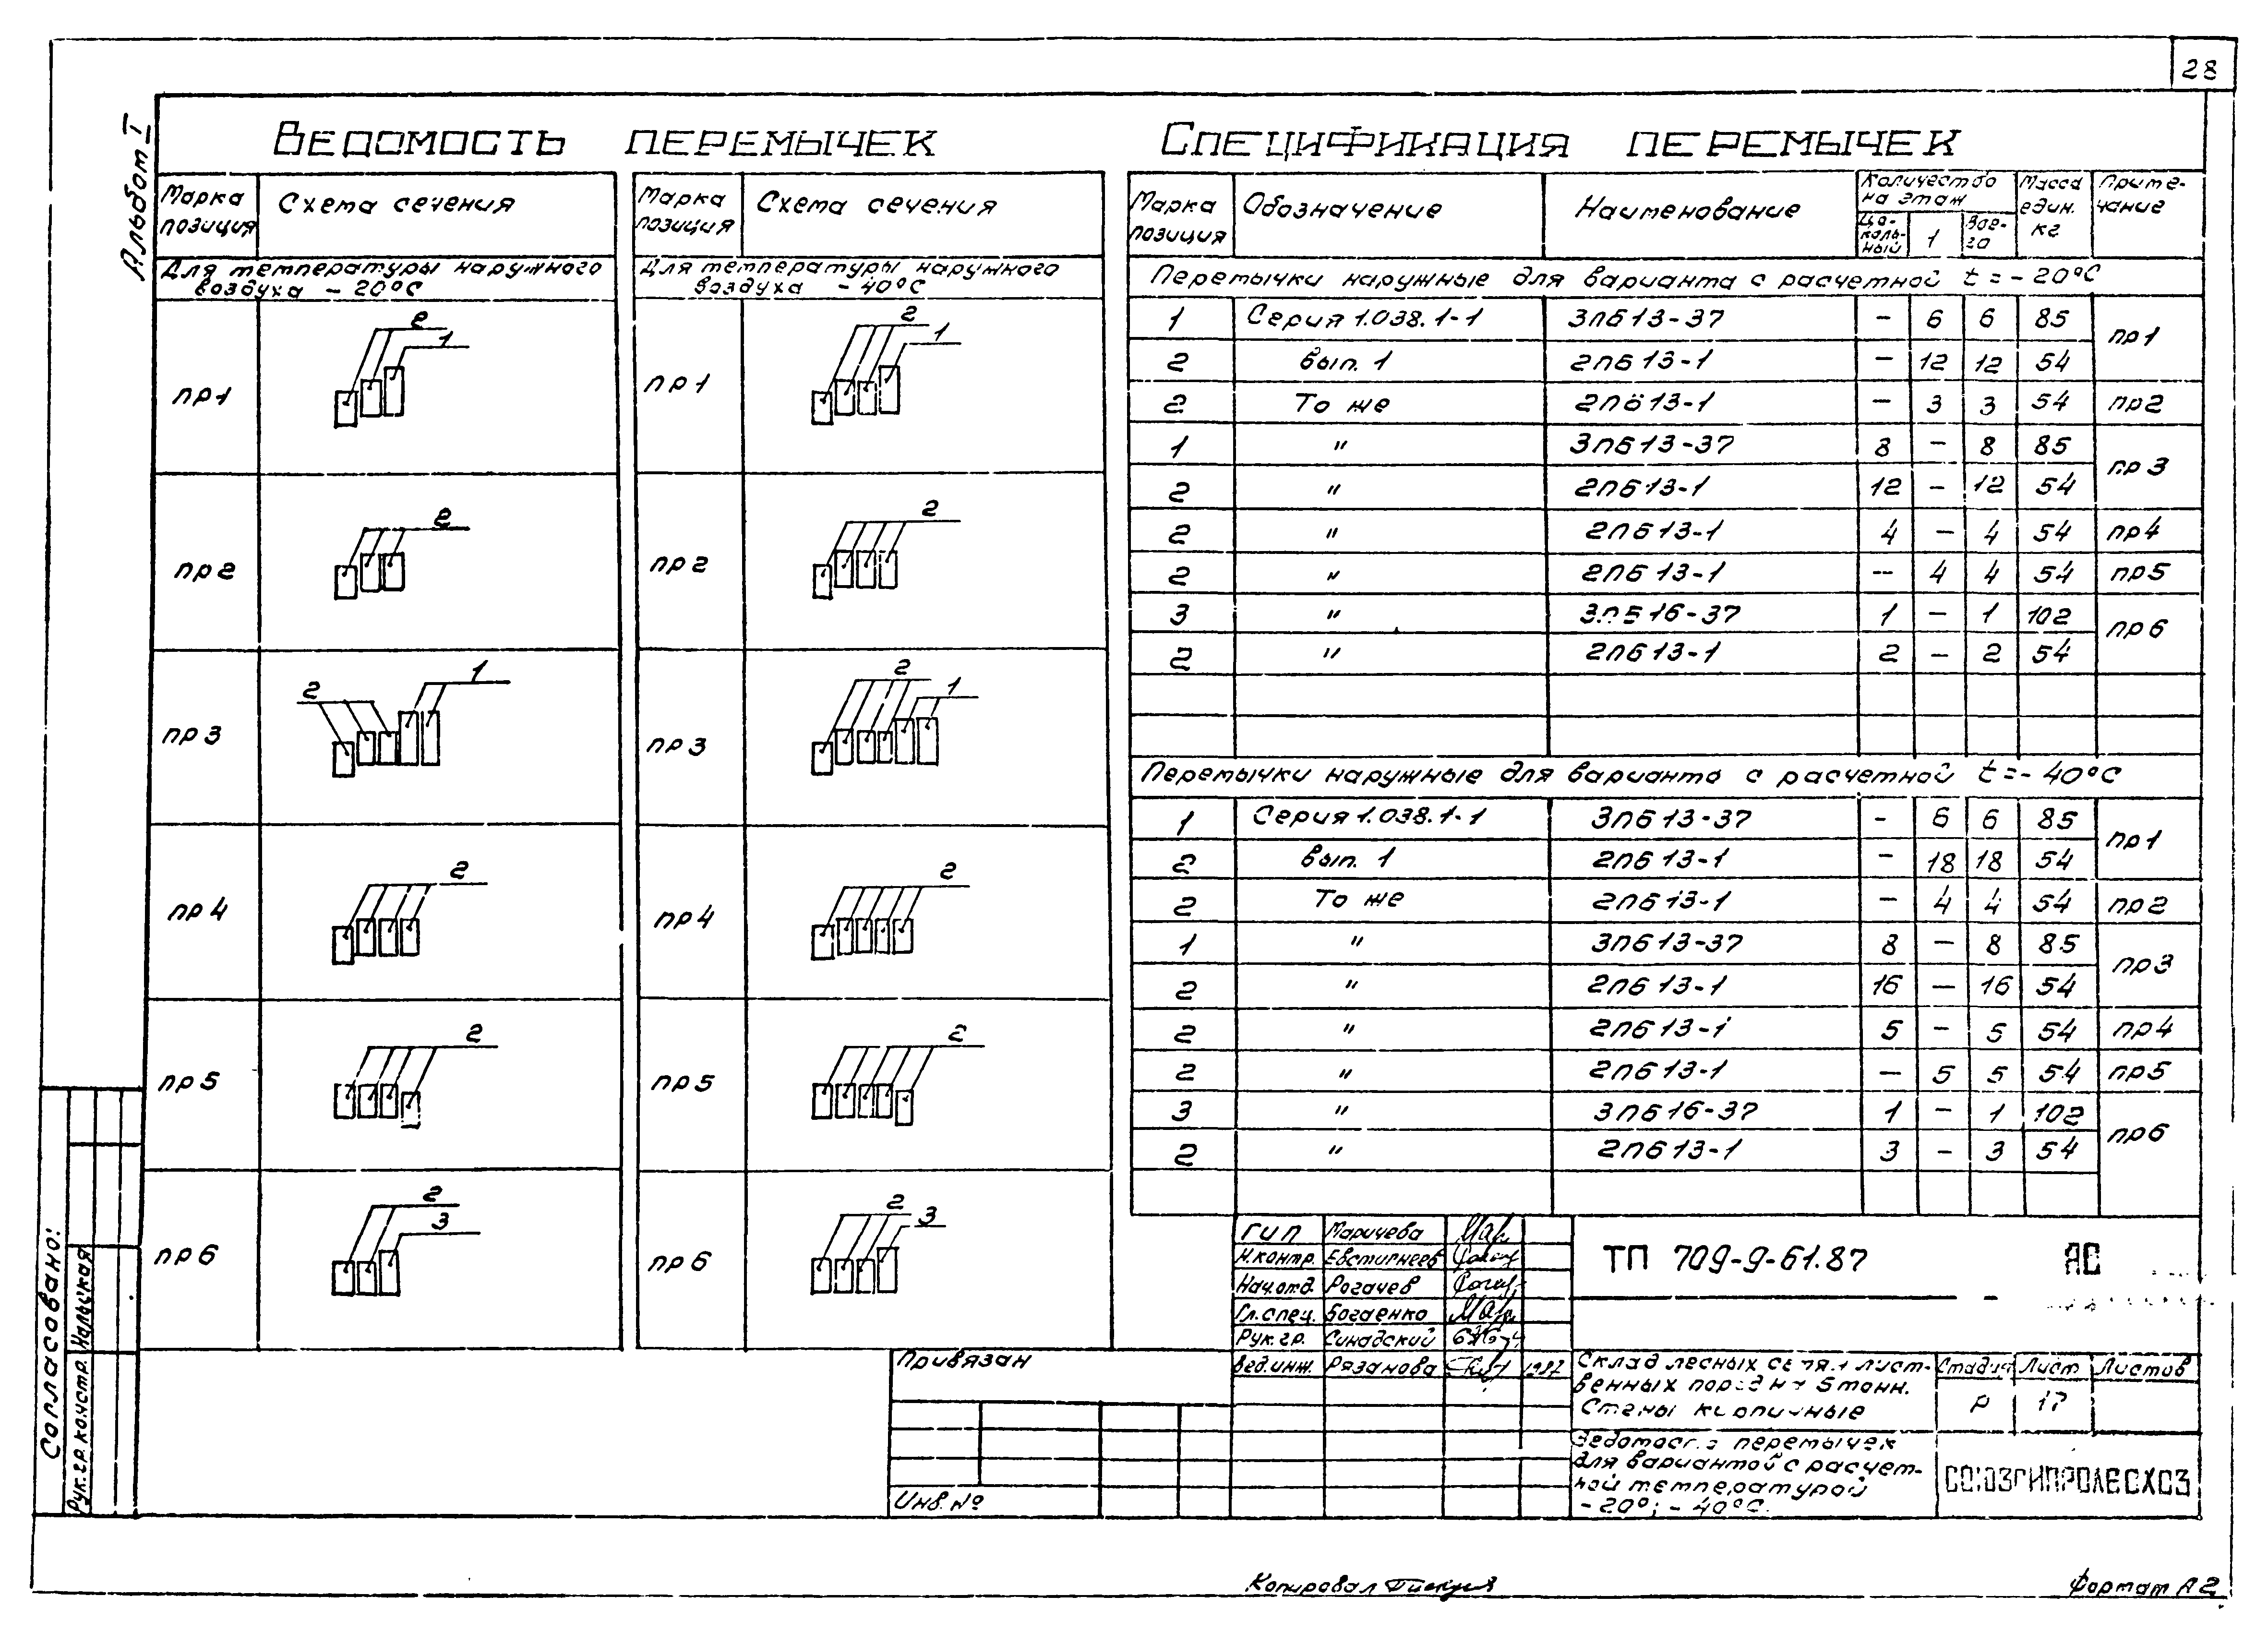 28
Альбом I
Ведомость перемычек
Марка позиция
Схема сечения
Марка позиция
Схема сечения
Для температуры наружного
воздуха - 20°С
Для температуры наружного
воздуха - 40°С
пр1
2
1
пр1
2
1
пр2
2
пр2
2
пр3
2
1
пр3
2
1
пр4
2
пр4
2
пр5
2
пр5
2
пр6
2
3
пр6
2
3
Спецификация перемычек
Марка позиция
Обозначение
Наименование
Количество на этаж
Цо-коль-ный
1
Все-го
Масса един. кг
Приме-чание
Перемычки наружные для варианта с расчетной t = - 20°С
1 Серия 1.038.1-1 3пб13-37 - 6 6 85 пр1
2 вып. 1 2пб13-1 - 12 12 54
2 То же 2пб13-1 - 3 3 54 пр2
1 " 3пб13-37 8 - 8 85 пр3
2 " 2пб13-1 12 - 12 54
2 " 2пб13-1 4 - 4 54 пр4
2 " 2пб13-1 - 4 4 54 пр5
3 " 3пб16-37 1 - 1 102 пр6
2 " 2пб13-1 2 - 2 54
Перемычки наружные для варианта с расчетной t = - 40°С
1 Серия 1.038.1-1 3пб13-37 - 6 6 85 пр1
2 вып. 1 2пб13-1 - 18 18 54
2 То же 2пб13-1 - 4 4 54 пр2
1 " 3пб13-37 8 - 8 85 пр3
2 " 2пб13-1 16 - 16 54
2 " 2пб13-1 5 - 5 54 пр4
2 " 2пб13-1 - 5 5 54 пр5
3 " 3пб16-37 1 - 1 102 пр6
2 " 2пб13-1 3 - 3 54
ГИП Маричева
Н.контр. Евстигнеев
Нач.отд. Рогачев
Гл.спец. Богаенко
Рук.гр. Синадский
Вед.инж. Рязанова 1987
ТП 709-9-61.87 АС
Склад лесных семян лист-
венных пород на 5 тонн.
Стены кирпичные
Стадия Лист Листов
Р 17
Ведомость перемычек
для вариантов с расчет-
ной температурой
- 20°; - 40°С.
СОЮЗГИПРОЛЕСХОЗ
Привязан
Инв. №
Согласовано:
Рук. гр. констр. Нальская
Копировал
Формат А2